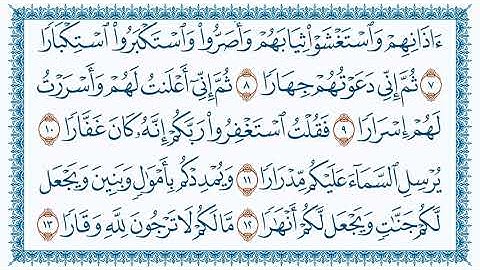 ءَاذَانِهِمْ وَٱسْتَغْشَوْا۟ ثِيَابَهُمْ وَأَصَرُّوا۟ وَٱسْتَكْبَرُوا۟ ٱسْتِكْبَارًا
٧ ثُمَّ إِنِّى دَعَوْتُهُمْ جِهَارًا ٨ ثُمَّ إِنِّىٓ أَعْلَنتُ لَهُمْ وَأَسْرَرْتُ
لَهُمْ إِسْرَارًا ٩ فَقُلْتُ ٱسْتَغْفِرُوا۟ رَبَّكُمْ إِنَّهُۥ كَانَ غَفَّارًا ١٠
يُرْسِلِ ٱلسَّمَآءَ عَلَيْكُم مِّدْرَارًا ١١ وَيُمْدِدْكُم بِأَمْوَٰلٍ وَبَنِينَ وَيَجْعَل
لَّكُمْ جَنَّٰتٍ وَيَجْعَل لَّكُمْ أَنْهَٰرًا ١٢ مَّا لَكُمْ لَا تَرْجُونَ لِلَّهِ وَقَارًا ١٣